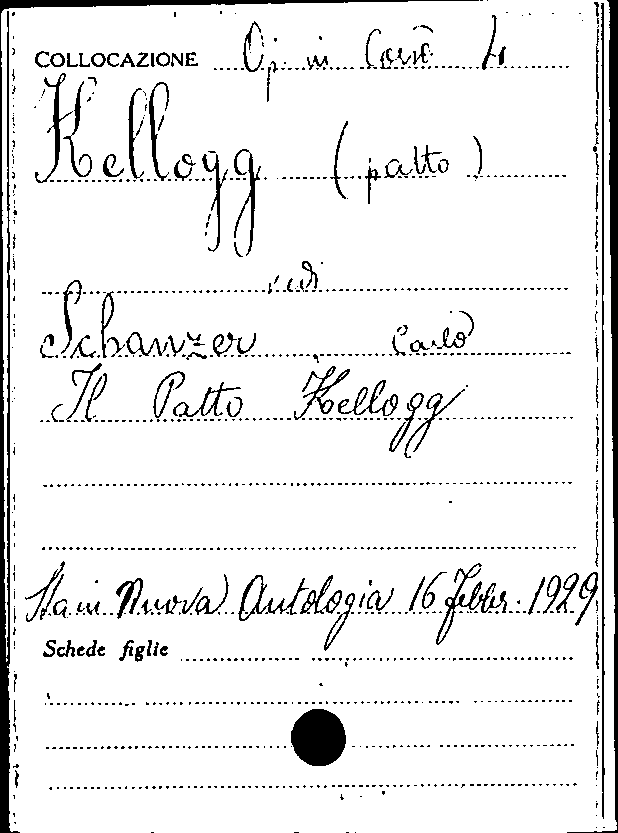 COLLOCAZIONE Op in Cors 4
Kellogg (patto)
vedi
Schanzer Carlo
Il Patto Kellogg
Sta in Nuova Antologia 16 Febbr. 1929
Schede figlie